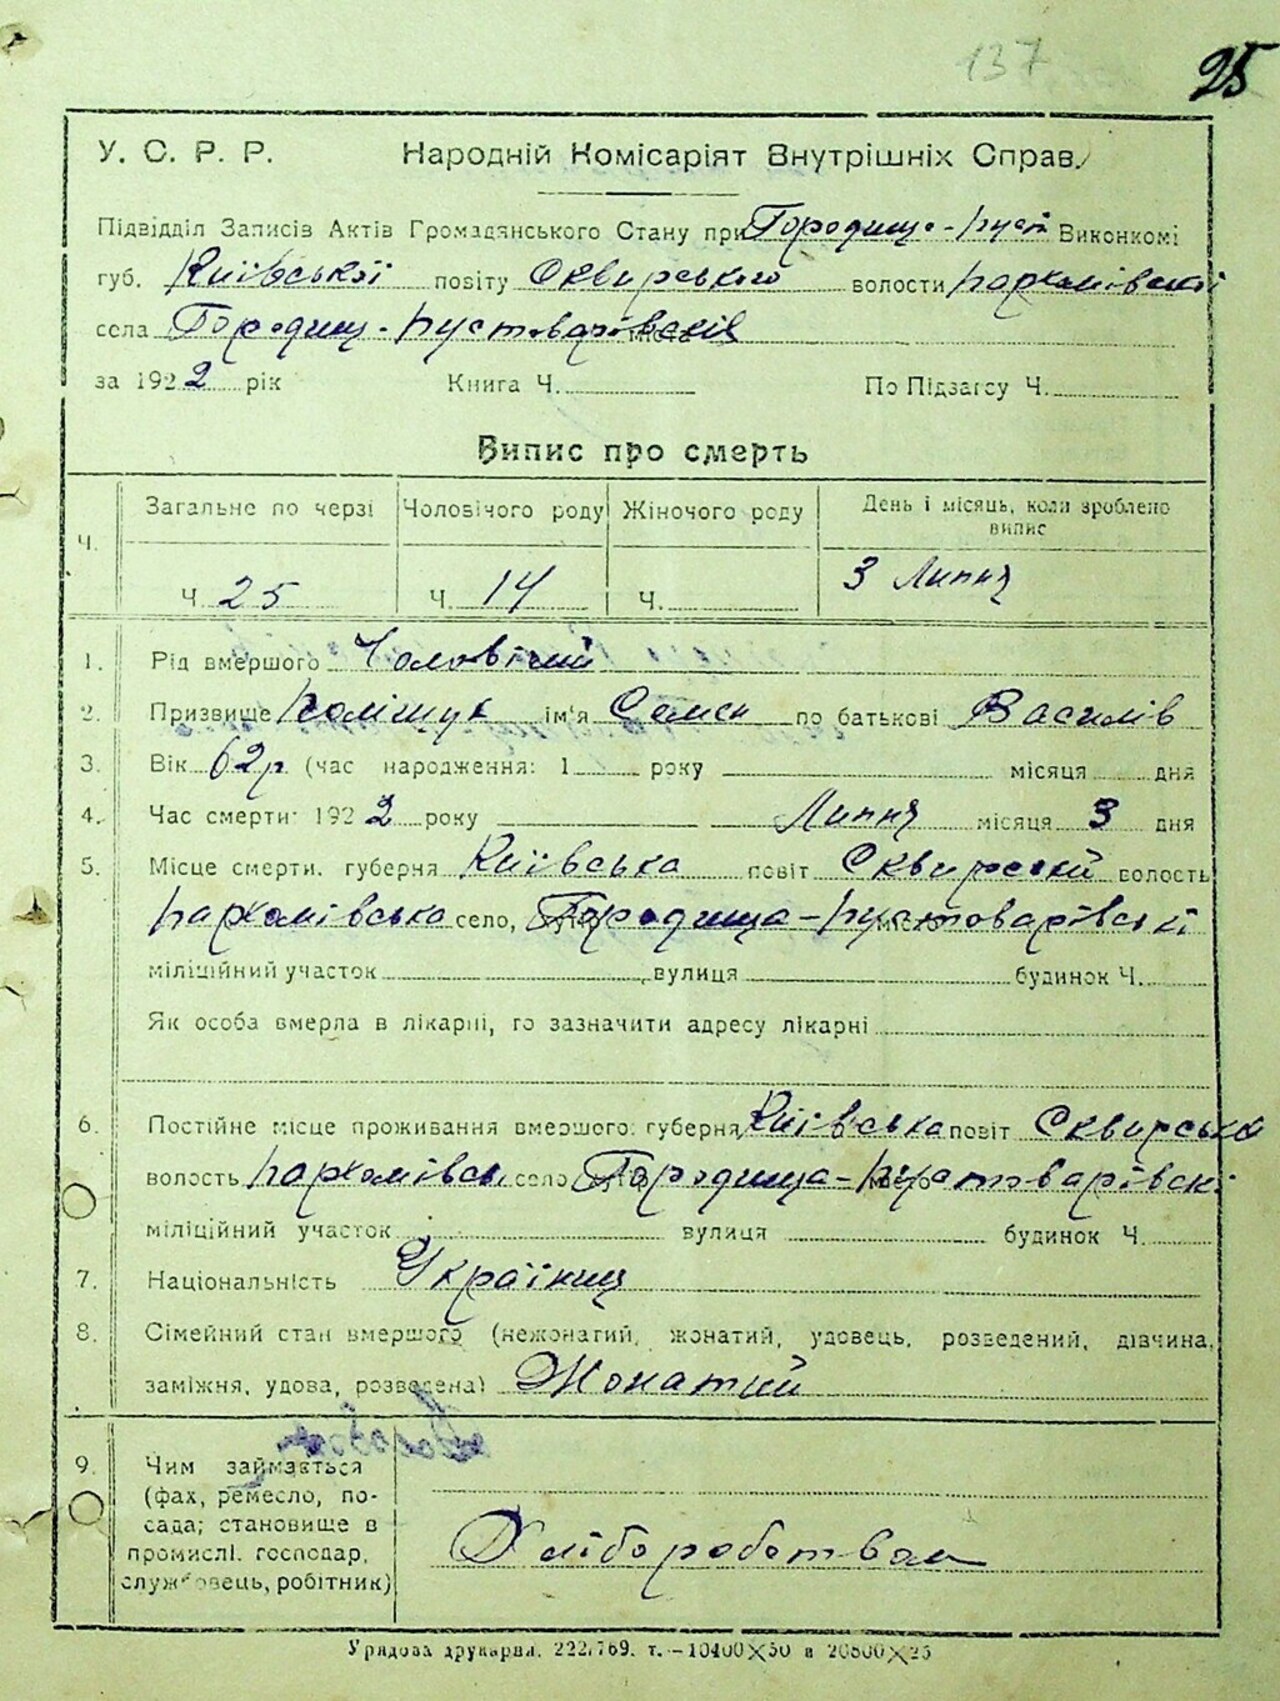 137 25
У. С. Р. Р. Народній Комісаріят Внутрішніх Справ.
Підвідділ Записів Актів Громадянського Стану при Городище-пуст Виконкомі
губ. Київської повіту Сквирського волости пархомівської
села Городищ-пустоварівскія
за 1922 рік Книга Ч. По Підзагсу Ч.
Випис про смерть
Ч. Загальне по черзі Чоловічого роду Жіночого роду День і місяць, коли зроблено
випис
Ч. 25 Ч. 14 Ч. 3 Липня
1. Рід вмершого Чоловічий
2. Призвище поліщук ім'я Семен по батькові Василів
3. Вік 62р (час народження: 1 року місяця дня
4. Час смерти: 1922 року Липня місяця 3 дня
5. Місце смерти. губерня Київська повіт Сквирский волость
пархомівська село, Городища-пустоварівскі
міліційний участок вулиця будинок Ч.
Як особа вмерла в лікарні, то зазначити адресу лікарні
6. Постійне місце проживання вмершого: губерня Київська повіт Сквирська
волость пархомівсь село Городища-пустоварівскі
міліційний участок вулиця будинок Ч.
7. Національність Українц
8. Сімейний стан вмершого (нежонатий, жонатий, удовець, розведений, дівчина,
заміжня, удова, розведена) Жонатий
9. Чим займається
(фах, ремесло, по-
сада; становище в
промислі. господар,
службовець, робітник) Хлібороботвом
Урядова друкарня. 222/769. т.—10400×50 и 20800×25